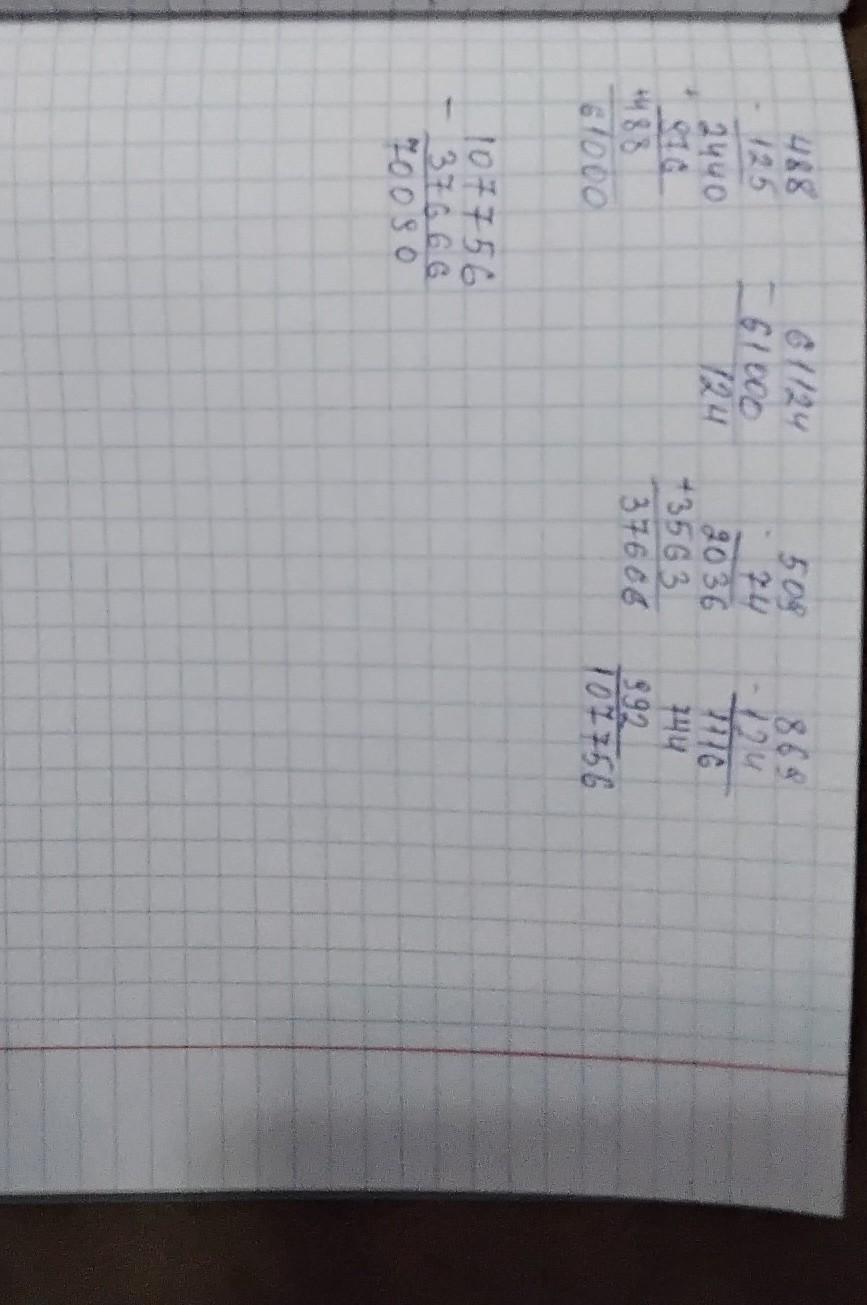 488
· 125
2440
+ 976
+488
61000
61124
- 61000
124
509
· 74
2036
+3563
37666
869
· 124
1116
744
992
107756
107756
- 37666
70090